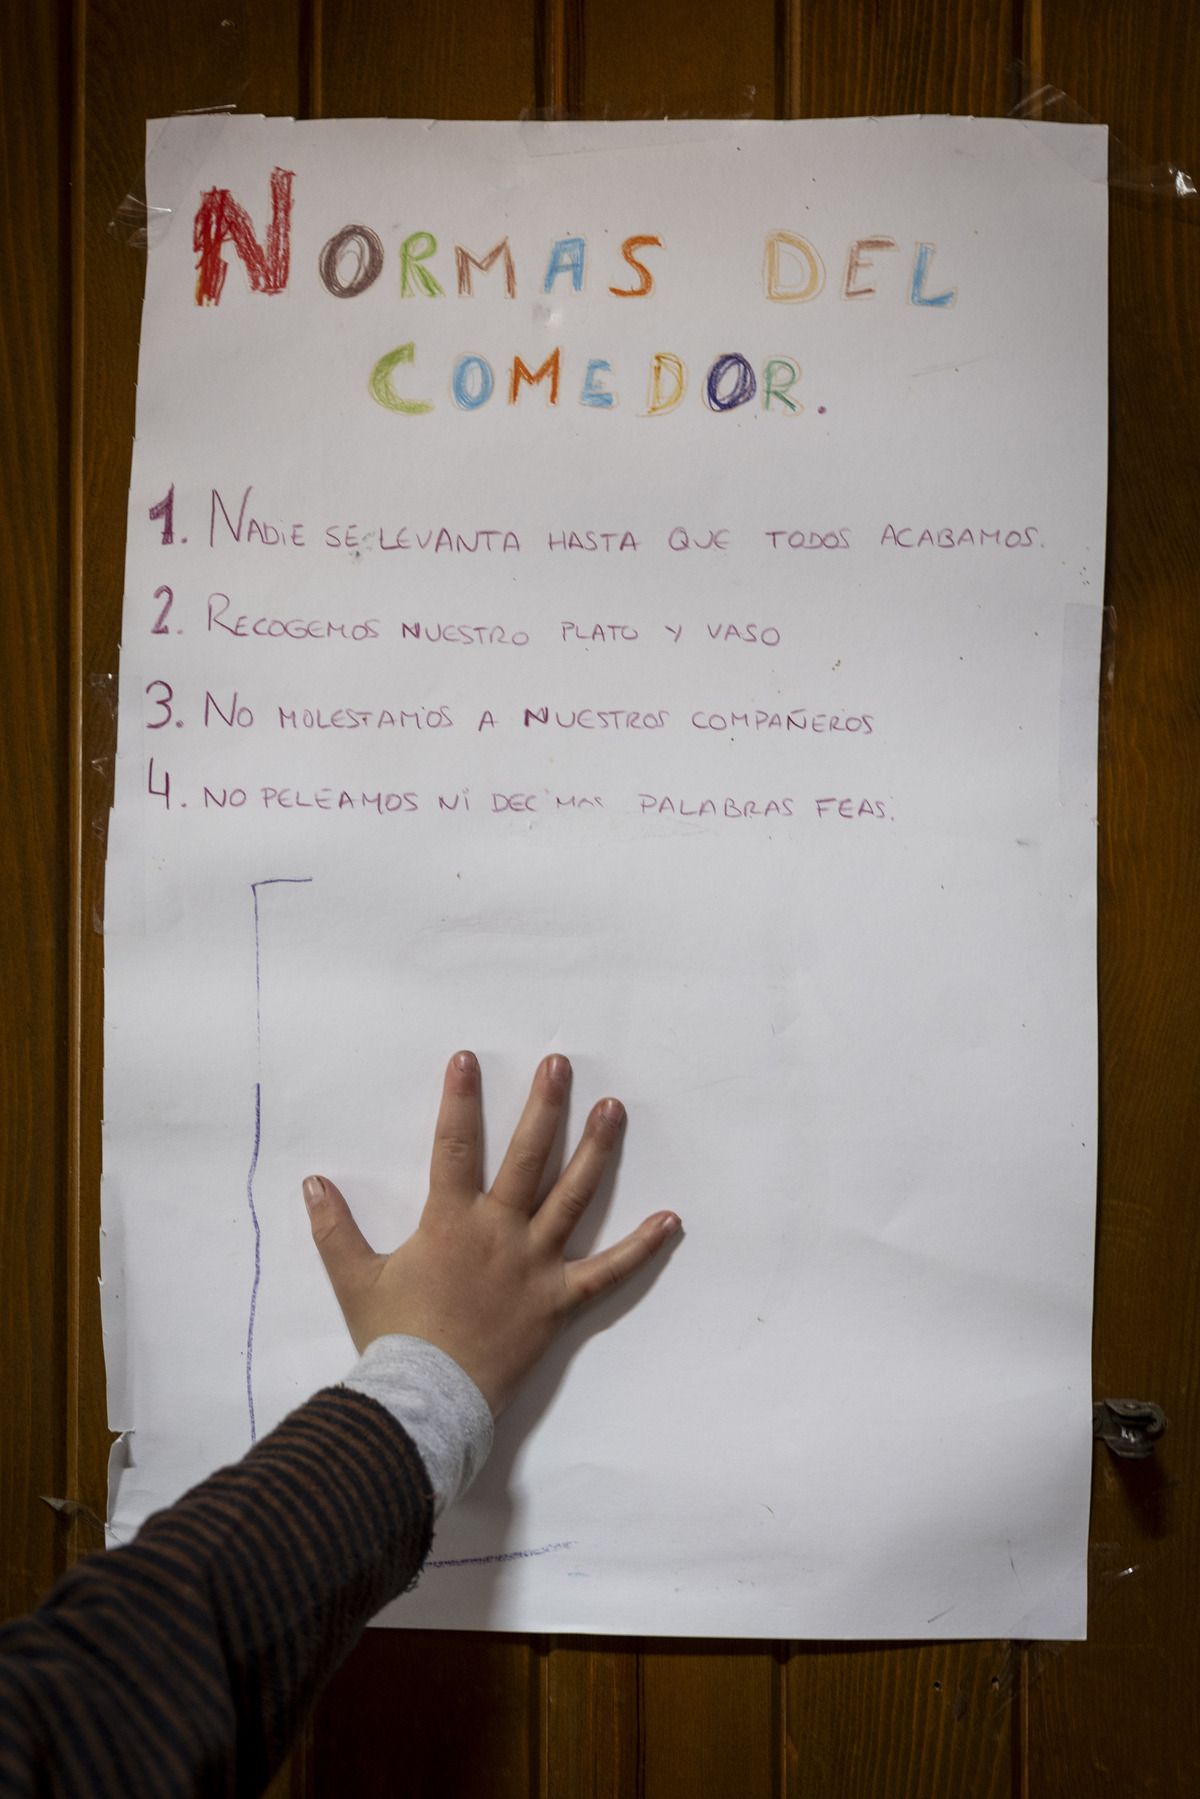 NORMAS DEL
COMEDOR.
1. NADIE SE LEVANTA HASTA QUE TODOS ACABAMOS.
2. RECOGEMOS NUESTRO PLATO Y VASO
3. NO MOLESTAMOS A NUESTROS COMPAÑEROS
4. NO PELEAMOS NI DECIMOS PALABRAS FEAS.